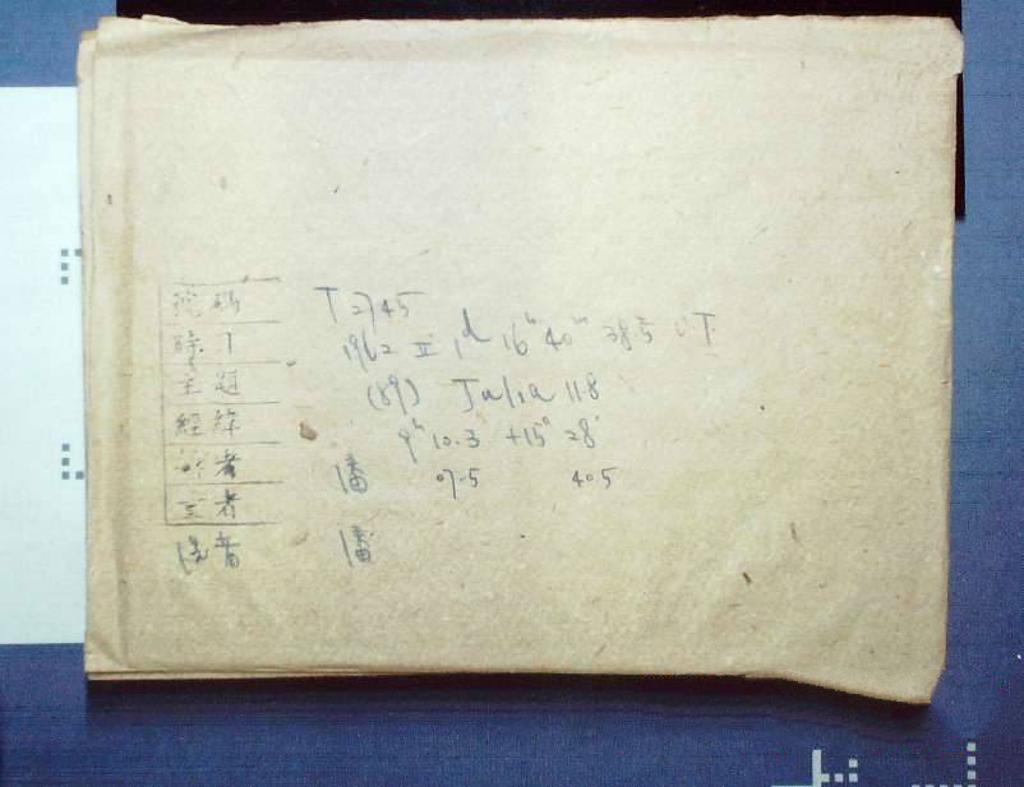 號碼 T 2745
1962 II 1d 16h 40m 38s.5 UT
主題 (89) Julia 11.8
經緯 9h 10.3 +15° 28'
者 潘 07.5 40.5
者
者 潘